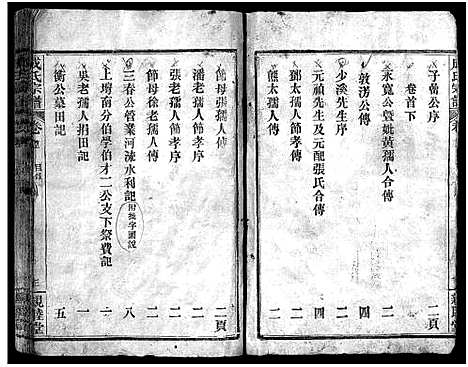 子嵒公序 二頁
卷首下
永寬公曁妣黃孺人合傳 四
敦澇公傳 二
少溪先生序 四
元禎先生及元配張氏合傳 四
鄧太孺人節孝序 二
熊太孺人傳 二
節母張孺人傳 二頁
潘老孺人節孝序 二
張老孺人傳 二
節母徐老孺人傳 二
三春公管業河洑水利記 附批字圖說 八
上塆南分學伯才二公支下祭費記 一
吳老孺人捐田記 一
衡公墓田記 五
成氏宗譜 卷首 目錄
親睦堂